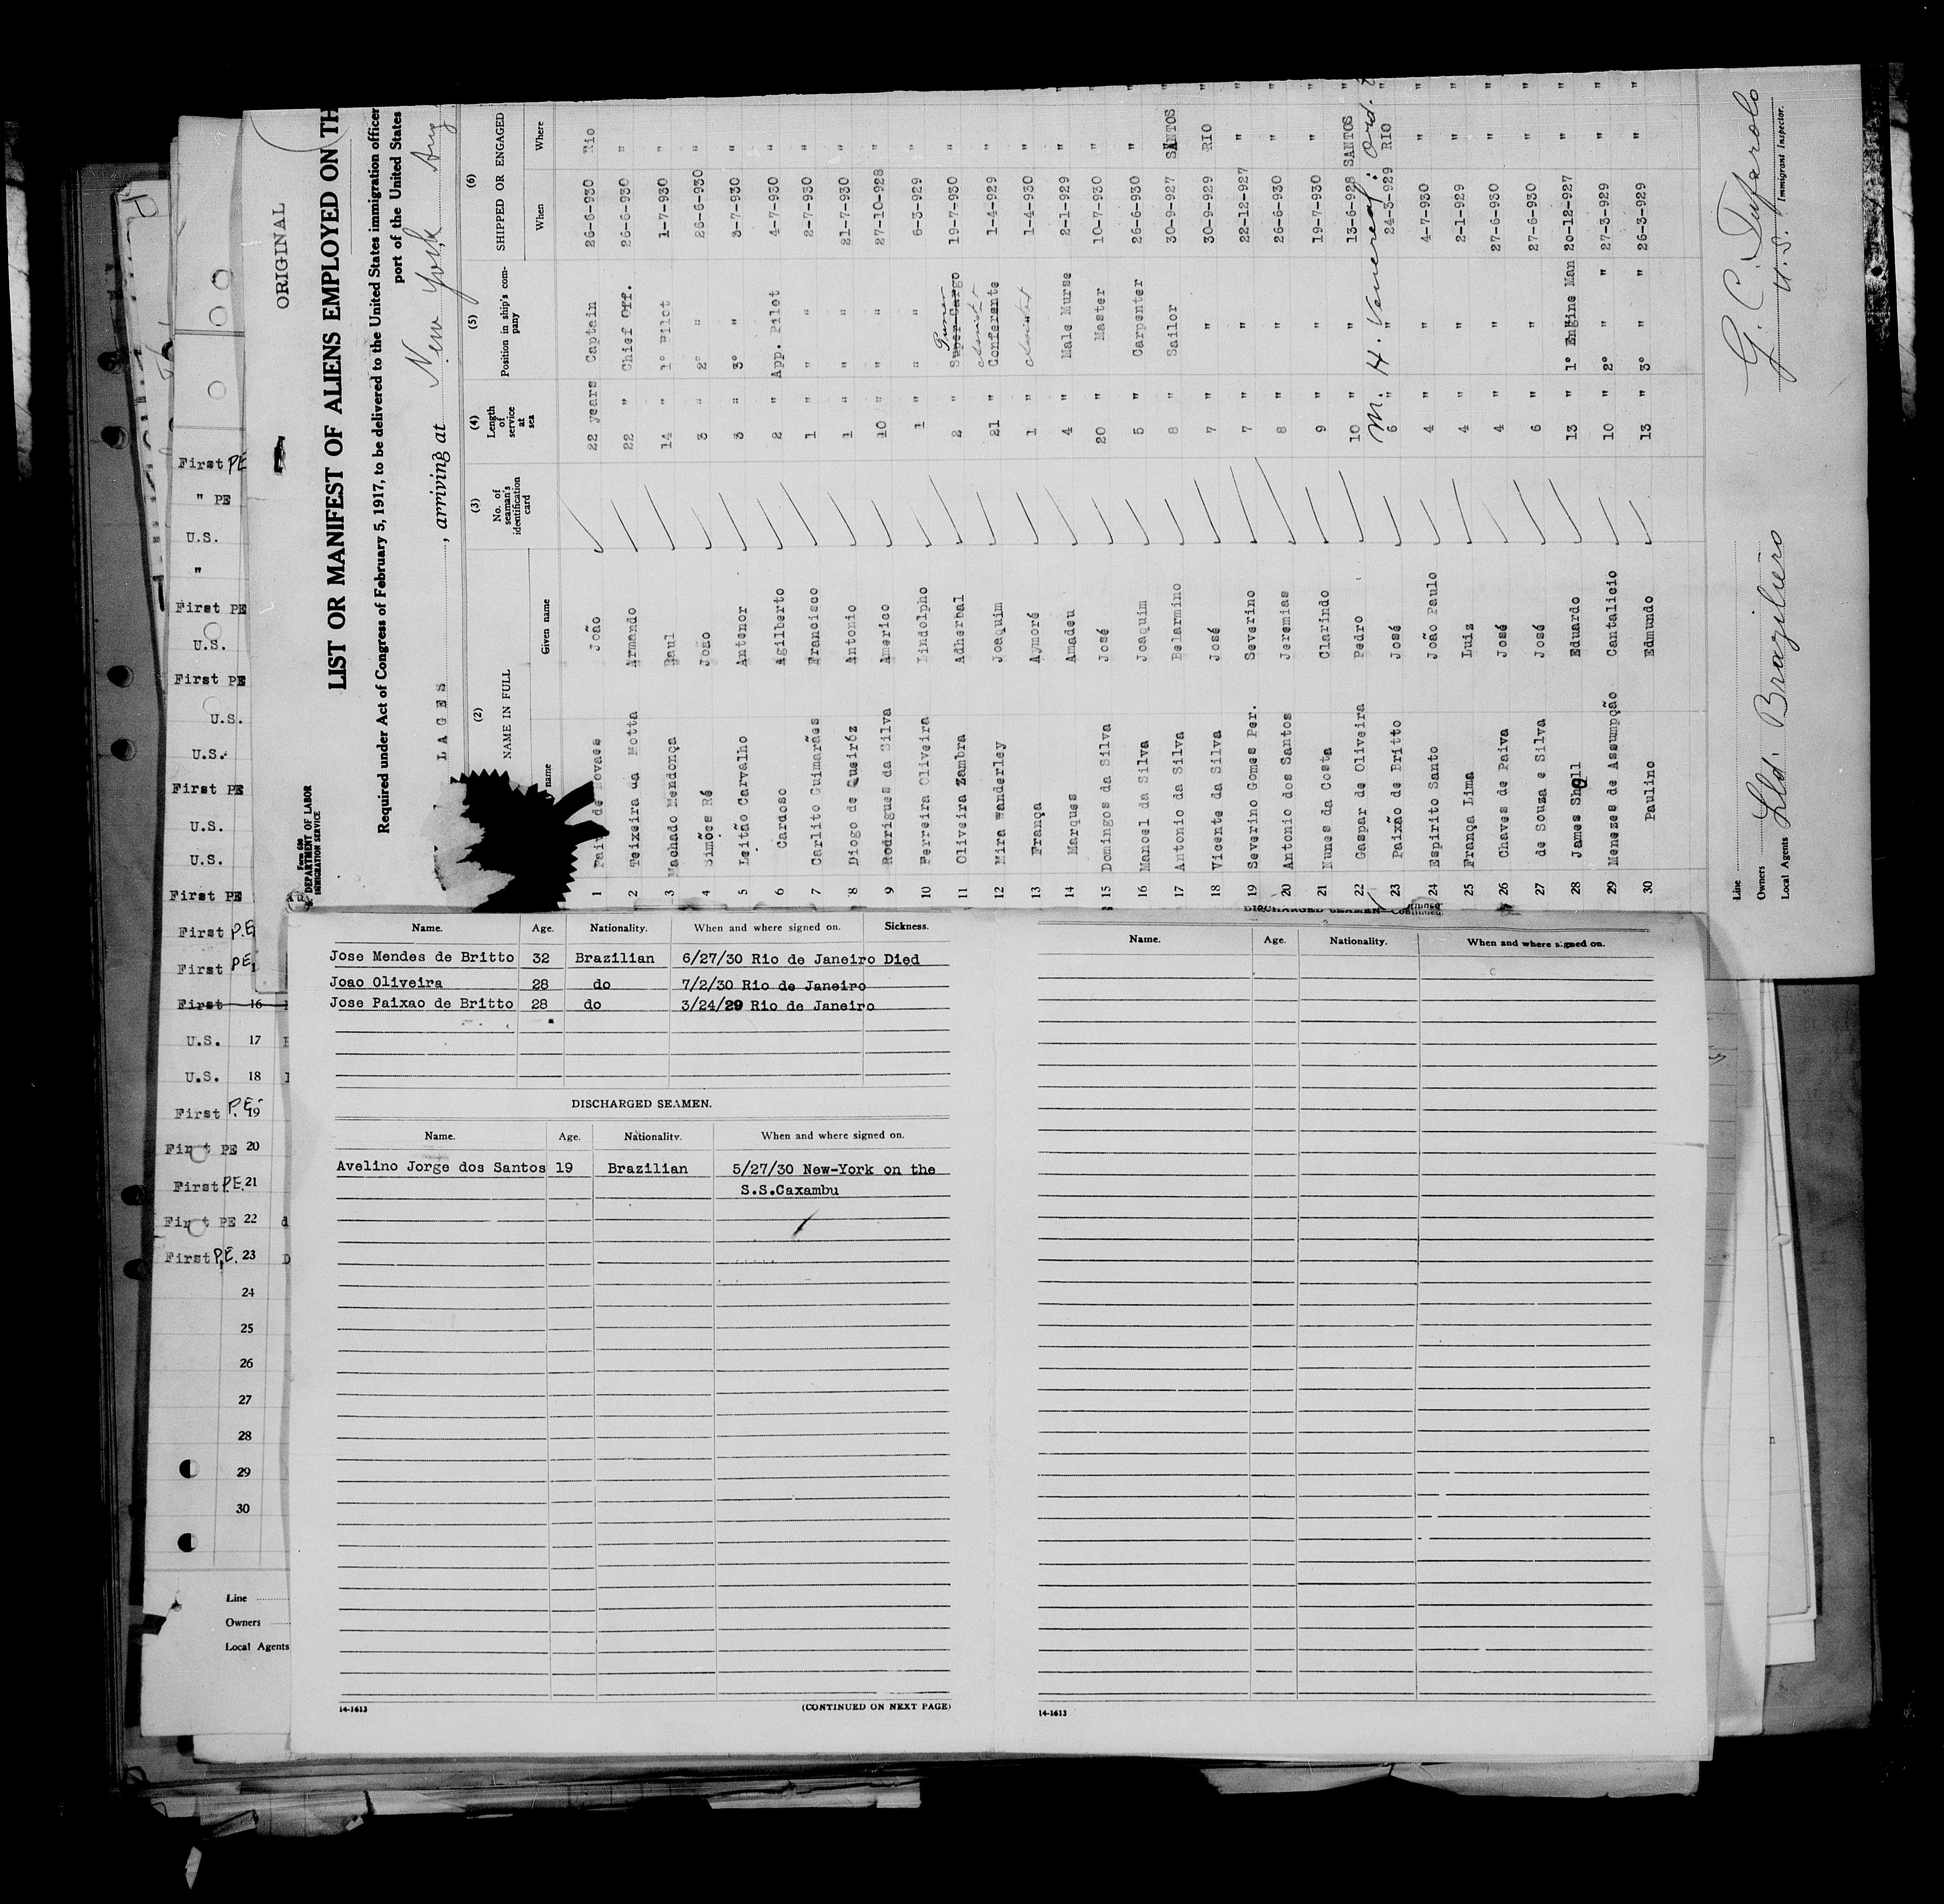 ORIGINAL
Form 680
DEPARTMENT OF LABOR
IMMIGRATION SERVICE
LIST OR MANIFEST OF ALIENS EMPLOYED ON TH
Required under Act of Congress of February 5, 1917, to be delivered to the United States immigration officer
port of the United States
LAGES , arriving at New York Aug
(2) (3) (4) (5) (6)
NAME IN FULL No. of seaman's identification card Length of service at sea Position in ship's company SHIPPED OR ENGAGED
name Given name When Where
1 Paiv de Novaes João 22 years Captain 26-6-930 Rio
2 Teixeira da Motta Armando 22 " Chief Off. 26-6-930 "
3 Machado Mendonça Raul 14 " 1° Pilot 1-7-930 "
4 Simões Ré João 3 " 2° " 26-6-930 "
5 Leitão Carvalho Antenor 3 " 3° " 3-7-930 "
6 Cardoso Agilberto 2 " App. Pilot 4-7-930 "
7 Carlito Guimarães Francisco 1 " " 2-7-930 "
8 Diogo de Queiróz Antonio 1 " " 21-7-930 "
9 Rodrigues da Silva Americo 10 " " 27-10-928 "
10 Ferreira Oliveira Lindolpho 1 " " 6-3-929 "
11 Oliveira Zambra Adherbal 2 " Super Cargo 19-7-930 "
12 Mira Wanderley Joaquim 21 " Conferente 1-4-929 "
13 França Aymoré 1 " 1-4-930 "
14 Marques Amadeu 4 " Male Nurse 2-1-929 "
15 Domingos da Silva José 20 " Master 10-7-930 "
16 Manoel da Silva Joaquim 5 " Carpenter 26-6-930 "
17 Antonio da Silva Belarmino 8 " Sailor 30-9-927 SANTOS "
18 Vicente da Silva José 7 " " 30-9-929 RIO "
19 Severino Gomes Per. Severino 7 " " 22-12-927 " "
20 Antonio dos Santos Jeremias 8 " " 26-6-930 " "
21 Nunes da Costa Clarindo 9 " " 19-7-930 " "
22 Gaspar de Oliveira Pedro 10 " " 13-6-928 SANTOS "
M. H. Venereal: Ord.
23 Paixão de Britto José 6 " " 24-3-929 RIO "
24 Espirito Santo João Paulo 4 " " 4-7-930 " "
25 França Lima Luiz 4 " " 2-1-929 " "
26 Chaves de Paiva José 4 " " 27-6-930 " "
27 de Souza e Silva José 6 " " 27-6-930 " "
28 James Shell Eduardo 13 " 1° Engine Man 20-12-927 " "
29 Menezes de Assumpção Cantalicio 10 " 2° " " 27-3-929 " "
30 Paulino Edmundo 13 " 3° " " 26-3-929 " "
Line
Owners
Local Agents Lld. Braziliero
U.S. Immigrant Inspector.
First PE
" PE
U.S.
"
First PE
U.S.
First PE
U.S.
U.S.
First PE
U.S.
U.S.
First PE
First P.E
First PE
First 16
U.S. 17
U.S. 18
First P.E. 19
First PE 20
First P.E. 21
First PE 22
First P.E. 23
24
25
26
27
28
29
30
Line
Owners
Local Agents
Name. Age. Nationality. When and where signed on. Sickness.
Jose Mendes de Britto 32 Brazilian 6/27/30 Rio de Janeiro Died
Joao Oliveira 28 do 7/2/30 Rio de Janeiro
Jose Paixao de Britto 28 do 3/24/29 Rio de Janeiro
DISCHARGED SEAMEN.
Name. Age. Nationality. When and where signed on.
Avelino Jorge dos Santos 19 Brazilian 5/27/30 New-York on the
S.S.Caxambu
14-1613 (CONTINUED ON NEXT PAGE)
DISCHARGED SEAMEN—Continued.
Name. Age. Nationality. When and where signed on.
14-1613